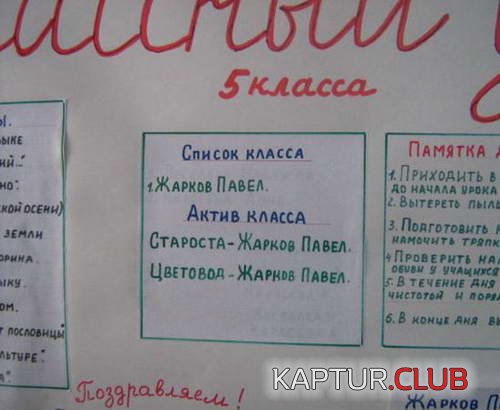 5 класса
Список класса
1. Жарков Павел.
Актив класса
Староста - Жарков Павел.
Цветовод - Жарков Павел.
кой осени)
земли
ом.
т пословицы"
льтуре".
Памятка
1. Приходить в
до начала урока
2. Вытереть
3. Подготовить
намочить
4 Проверить
обуви у учащихся
5. В течение дня
чистотой и
6. В конце дня
Поздравляем!
Жарков П
KAPTUR.CLUB